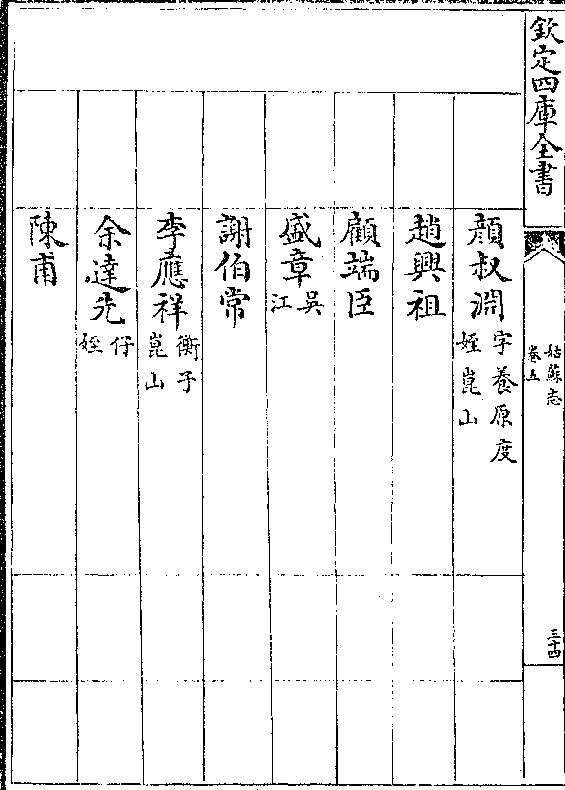 欽定四庫全書
姑蘇志
卷五
三十四
顔叔淵字養原度
姪崑山
趙興祖
顧端臣
盛章吳
江
謝伯常
李應祥衡子
崑山
余達先仔
姪
陳甫